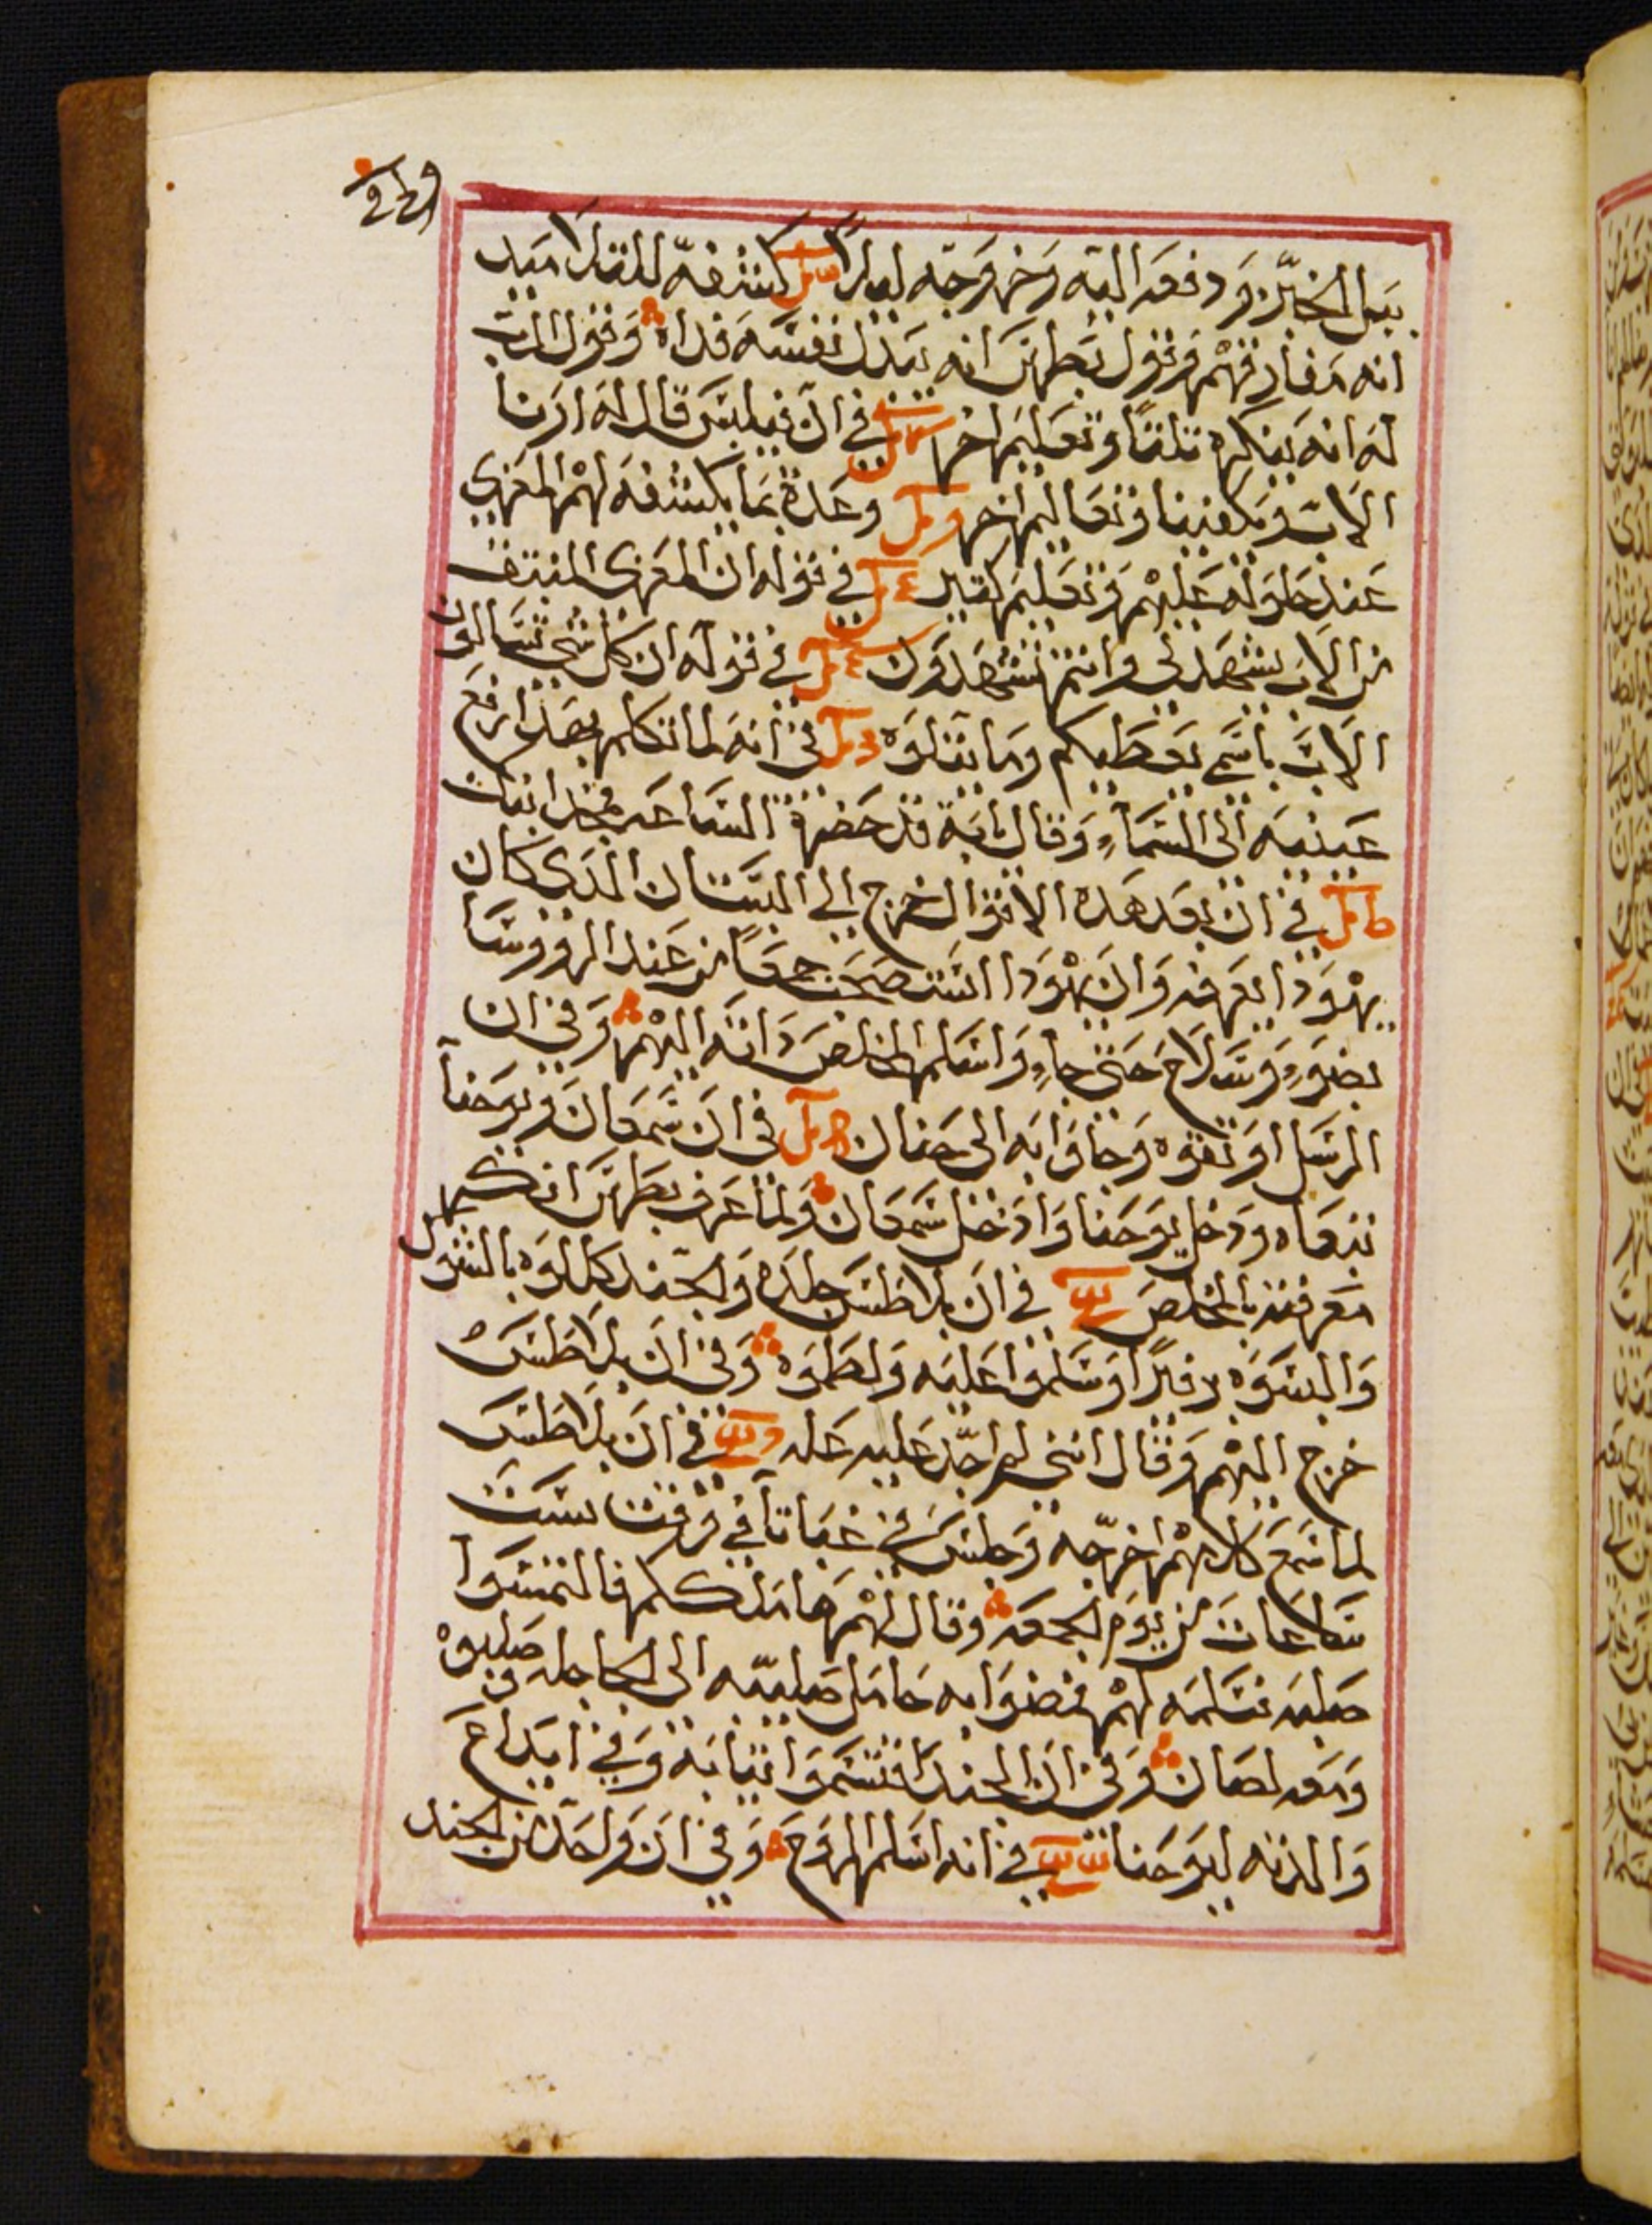 ببل الخبز ودفعه اليه وخروجه ليلاً كشفه للتلاميد
انه مفارقهم وقول بطرس انه يبدل نفسه فداه وقول الرب
له انه ينكره تلتاً وتعليم اخر في ان فيلبس قال له ارنا
الاب ويكفينا وتعاليم اخر وعده بما يكشفه لهم المعزي
عند حلوله عليهم وتعليم كتير في قوله ان المعزى المنبتق
من الاب يشهد لي وانتم تشهدون في قوله ان كل شي تسالون
الاب باسمي يعطيكم وما يتلوه في انه لما تكلم بهدا رفع
عينيه الى السماء وقال يابه قد حضرة الساعه فمجد ابنك
في ان بعد هده الاقوال خرج الي البستان الدى كان
يهودا يعرفه وان يهودا استصحب جمعاً من عند الرووسا
بضوء وسلاح حتى جاء واسلم المخلص دانه اليهم وفي ان
الرسل اوتقوه وجاوا به الى حنان في ان سمعان ويوحنا
تبعاه ودخل يوحنا وادخل سمعان ولما عرف بطرس انكر
معرفته بالمخلص في ان بلاطس جلده والجند كللوه بالشوك
والبسوه برفيراً وسلموا عليه ولطموه وفي ان بلاطس
خرج اليهم وقال انني لم اجد عليه عله في ان بلاطس
لما سمع كلامهم اخرجه وجلس في غباتا في وقت ست
ساعات من يوم الجمعه وقال لهم هاملككم فالتمسوا
صلبه فسلمه لهم فمضوا به حامل صليبه الى الجاجله وصلبوه
ومعه لصان وفي ان الجند اقتسموا تيابه وفي ايداع
والدته ليوحنا في انه اسلم الروح وفي ان واحد من الجند